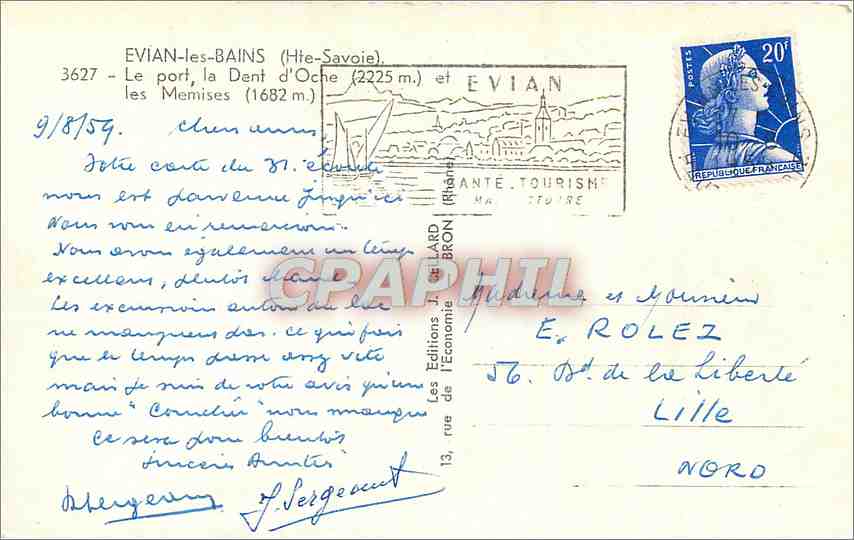 EVIAN-les-BAINS (Hte-Savoie).
3627 - Le port, la Dent d'Oche (2225 m.) et
les Memises (1682 m.)
EVIAN
SANTÉ. TOURISME
POSTES
20F
REPUBLIQUE FRANÇAISE
9/8/59. Chers amis,
Votre carte du 31. écoulé
nous est parvenue jusqu'ici
Nous vous en remercions.
Nous avons également un temps
excellent, plutôt chaud
Les excursions autour du lac
ne manquent pas. Ce qui fait
que le temps passe assez vite
mais je suis de votre avis qu'une
bonne " " nous manque
Ce sera pour bientôt
Sincères Amitiés
J. Sergeant
Les Editions J. CELLARD
13, rue de l'Economie BRON (Rhône)
CPAPHIL
Madame et Monsieur
E. ROLEZ
56. Bd. de la Liberté
Lille
NORD